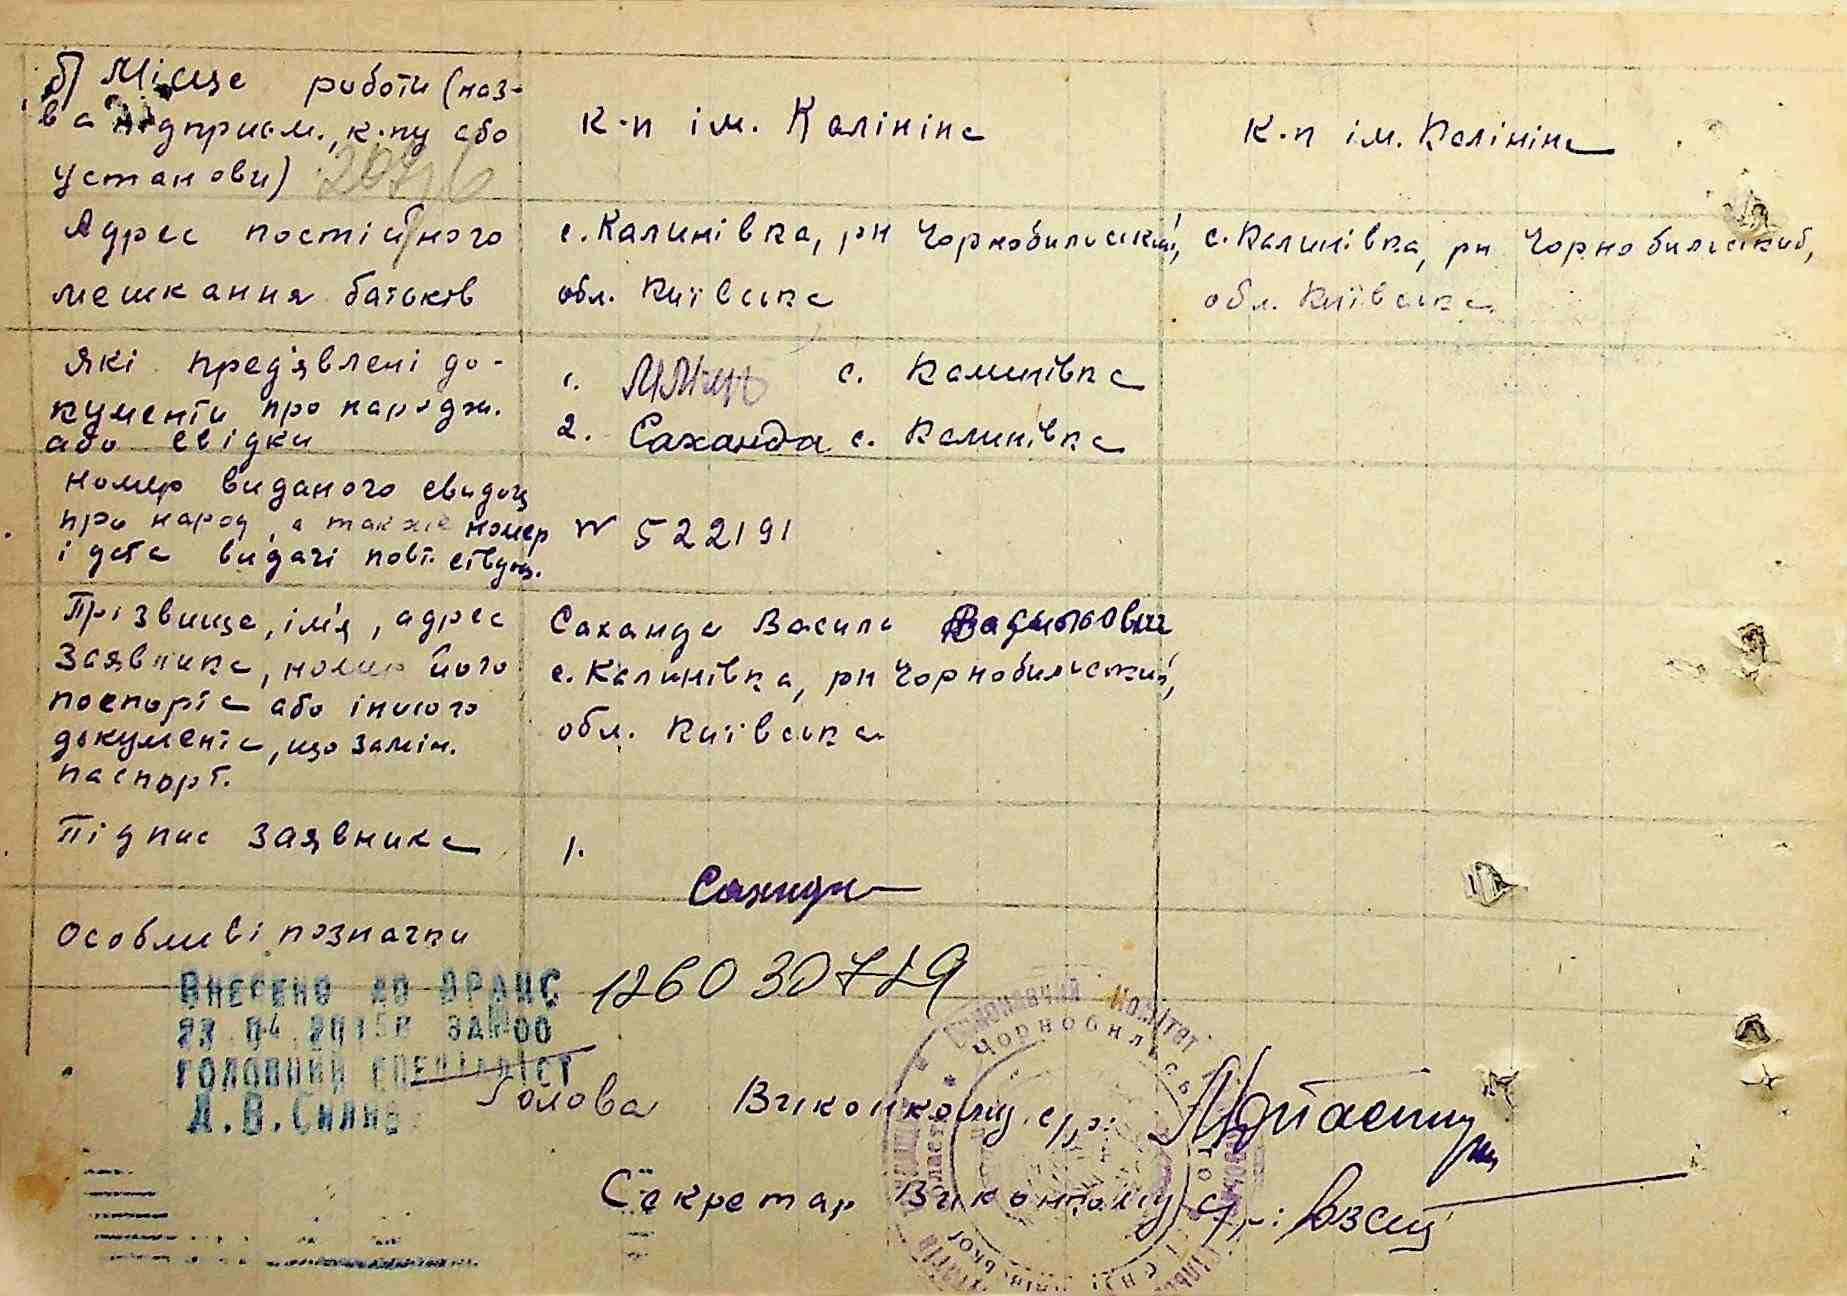 б) Місце роботи (наз-
ва підприєм., к-пу або
установи)
к-п ім. Калініна
к-п ім. Калініна
Адрес постійного
мешкання батьків
с. Калинівка, рн Чорнобильський,
обл. Київська
с. Калинівка, рн Чорнобильський,
обл. Київська
Які пред'явлені до-
кументи про народж.
або свідки
1. с. Калинівка
2. Саханда с. Калинівка
Номер виданого свидоц
про народ, а також номер
і дата видачі повт. свідоц.
№ 522191
Прізвище, ім'я, адрес
Заявника, номер його
поспорта або іншого
документа, що замін.
паспорт.
Саханда Василь Васильович
с. Калинівка, рн Чорнобильський,
обл. Київська
Підпис заявника
1.
Особливі позначки
ВНЕСЕНО ДО ДРАЦС
ГОЛОВНИЙ СПЕЦІАЛІСТ
Голова Виконкому с/р:
Секретар Виконкому с/р:
Виконавчий Комітет
Чорнобильського